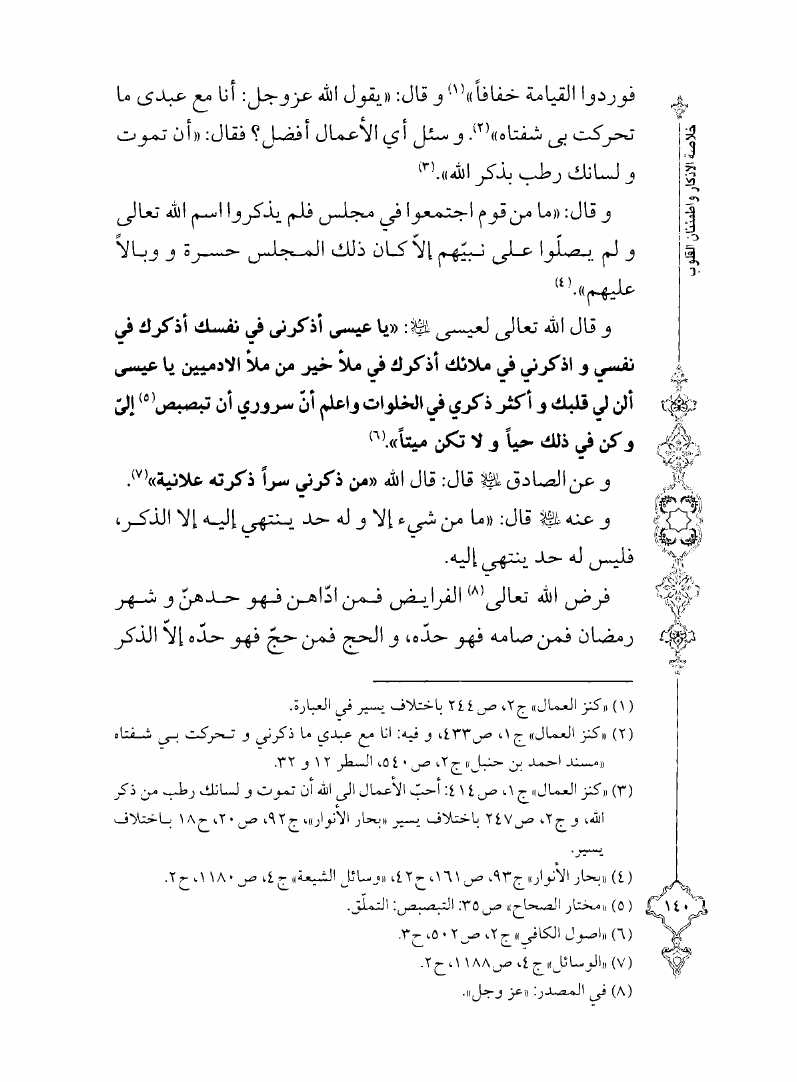 خلاصة الاذكار واطمئنان القلوب
فوردوا القيامة خفافاً»(١) و قال: «يقول الله عزوجل: أنا مع عبدى ما
تحركت بى شفتاه»(٢). و سئل أي الأعمال أفضل؟ فقال: «أن تموت
و لسانك رطب بذكر الله».(٣)
و قال: «ما من قوم اجتمعوا في مجلس فلم يذكروا اسم الله تعالى
و لم يـصلّوا عـلى نـبيّهم إلاّ كـان ذلك المـجلس حسـرة و وبـالاً
عليهم».(٤)
و قال الله تعالى لعيسى ﷺ: «يا عيسى أذكرنى في نفسك أذكرك في
نفسي و اذكرني في ملائك أذكرك في ملأ خير من ملأ الادميين يا عيسى
ألن لي قلبك و أكثر ذكري في الخلوات واعلم أنّ سروري أن تبصبص(٥) إليّ
و كن في ذلك حياً و لا تكن ميتاً».(٦)
و عن الصادق ﷺ قال: قال الله «من ذكرني سراً ذكرته علانية»(٧).
و عنه ﷺ قال: «ما من شيء إلا و له حد يـنتهي إليـه إلا الذكـر،
فليس له حد ينتهي إليه.
فرض الله تعالى(٨) الفرايـض فـمن ادّاهـن فـهو حـدهنّ و شـهر
رمضان فمن صامه فهو حدّه، و الحج فمن حجّ فهو حدّه إلاّ الذكر
(١) «كنز العمال» ج٢، ص٢٤٤ باختلاف يسير في العبارة.
(٢) «كنز العمال» ج١، ص٤٣٣، و فيه: انا مع عبدي ما ذكرني و تـحركت بـي شـفتاه
«مسند احمد بن حنبل» ج٢، ص٥٤٠، السطر ١٢ و ٣٢.
(٣) «كنز العمال» ج١، ص٤١٤: أحبّ الأعمال الى الله أن تموت و لسانك رطب من ذكر
الله، و ج٢، ص٢٤٧ باختلاف يسير «بحار الأنوار»، ج٩٢، ص٢٠، ح١٨ بـاختلاف
يسير.
(٤) «بحار الأنوار» ج٩٣، ص١٦١، ح٤٢، «وسائل الشيعة» ج٤، ص١١٨٠، ح٢.
(٥) «مختار الصحاح» ص٣٥: التبصبص: التملّق.
(٦) «اصول الكافي» ج٢، ص٥٠٢، ح٣.
(٧) «الوسائل» ج٤، ص١١٨٨، ح٢.
(٨) في المصدر: «عز وجل».
١٤٠